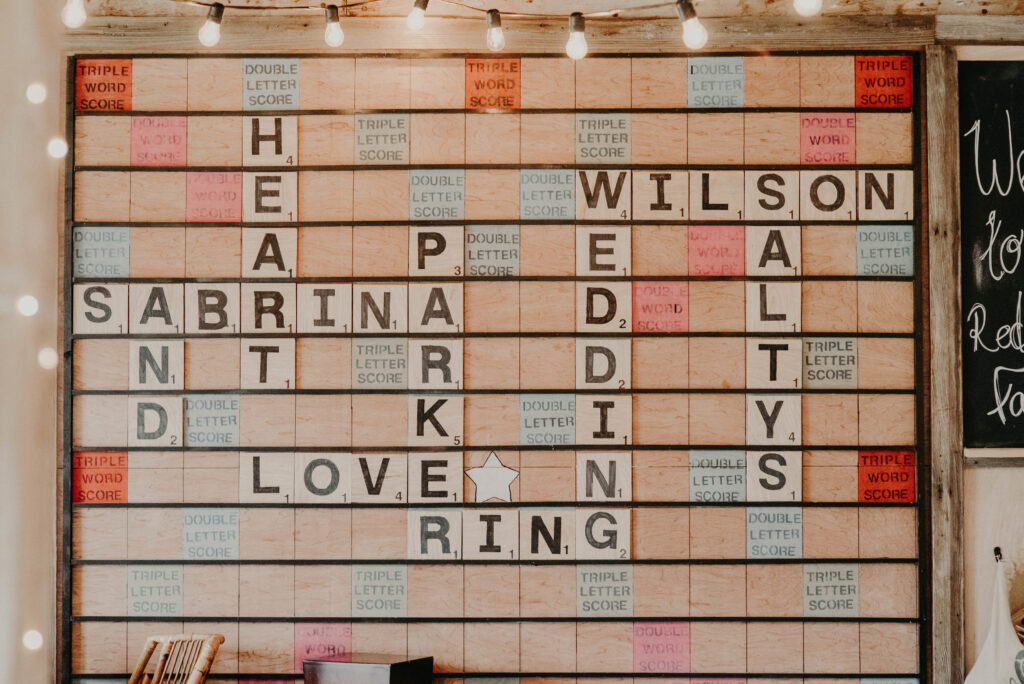 TRIPLE WORD SCORE
DOUBLE LETTER SCORE
TRIPLE WORD SCORE
DOUBLE LETTER SCORE
TRIPLE WORD SCORE
DOUBLE WORD SCORE
HEART
TRIPLE LETTER SCORE
TRIPLE LETTER SCORE
DOUBLE WORD SCORE
DOUBLE WORD SCORE
DOUBLE LETTER SCORE
DOUBLE LETTER SCORE
WILSON
WEDDING
SALTYS
DOUBLE LETTER SCORE
PARKER
DOUBLE LETTER SCORE
DOUBLE WORD SCORE
DOUBLE LETTER SCORE
SABRINA
DOUBLE WORD SCORE
AND
TRIPLE LETTER SCORE
TRIPLE LETTER SCORE
DOUBLE LETTER SCORE
DOUBLE LETTER SCORE
TRIPLE WORD SCORE
LOVE
DOUBLE LETTER SCORE
TRIPLE WORD SCORE
DOUBLE LETTER SCORE
RING
DOUBLE LETTER SCORE
TRIPLE LETTER SCORE
TRIPLE LETTER SCORE
TRIPLE LETTER SCORE
TRIPLE LETTER SCORE
DOUBLE WORD
DOUBLE WORD SCORE